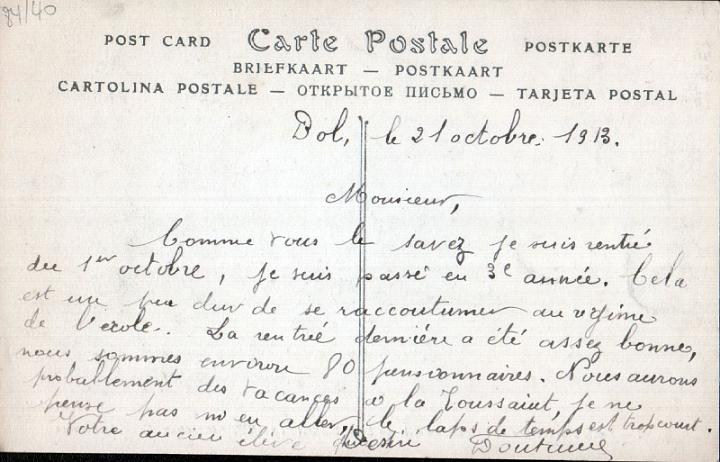 84/40
POST CARD Carte Postale POSTKARTE
BRIEFKAART — POSTKAART
CARTOLINA POSTALE — ОТКРЫТОЕ ПИСЬМО — TARJETA POSTAL
Dol, le 21 octobre 1913.
Monsieur,
Comme vous le savez je suis rentré
du 1er octobre, je suis passé en 3e année. Cela
est un peu dur de se raccoutumer au régime
de l'école. La rentrée dernière a été assez bonne,
nous sommes environ 80 pensionnaires. Nous aurons
probablement des vacances à la Toussaint, je ne
pense pas m'en aller, le laps de temps est trop court.
Votre ancien élève